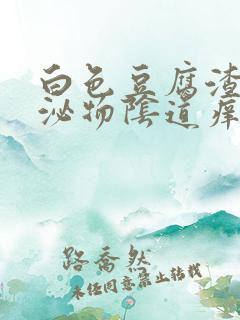 白色豆腐渣
泌物陰道痒
路喬然
未经同意禁止转载